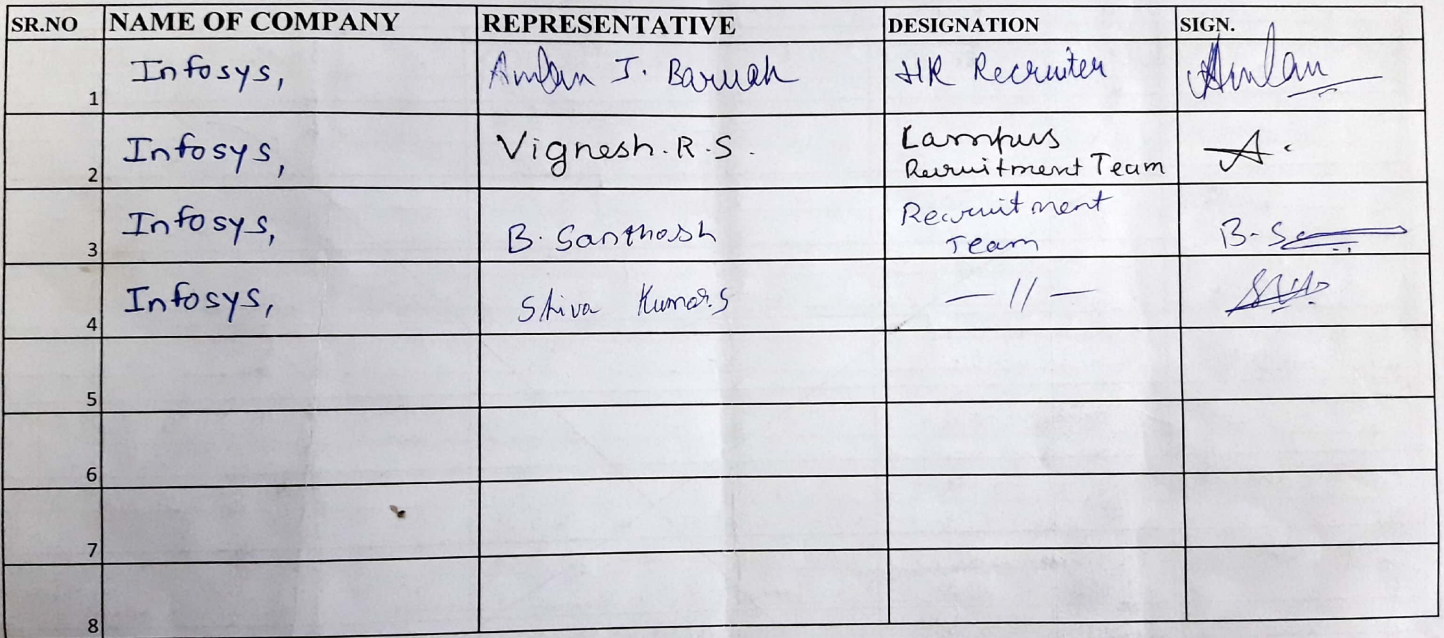 SR.NO NAME OF COMPANY REPRESENTATIVE DESIGNATION SIGN.
1 Infosys, Amlan J. Baruah HR Recruiter Amlan
2 Infosys, Vignesh.R.S. Campus
Recruitment Team A.
3 Infosys, B. Santhosh Recruitment
Team B.S
4 Infosys, Shiva Kumar.S —11—
5
6
7
8